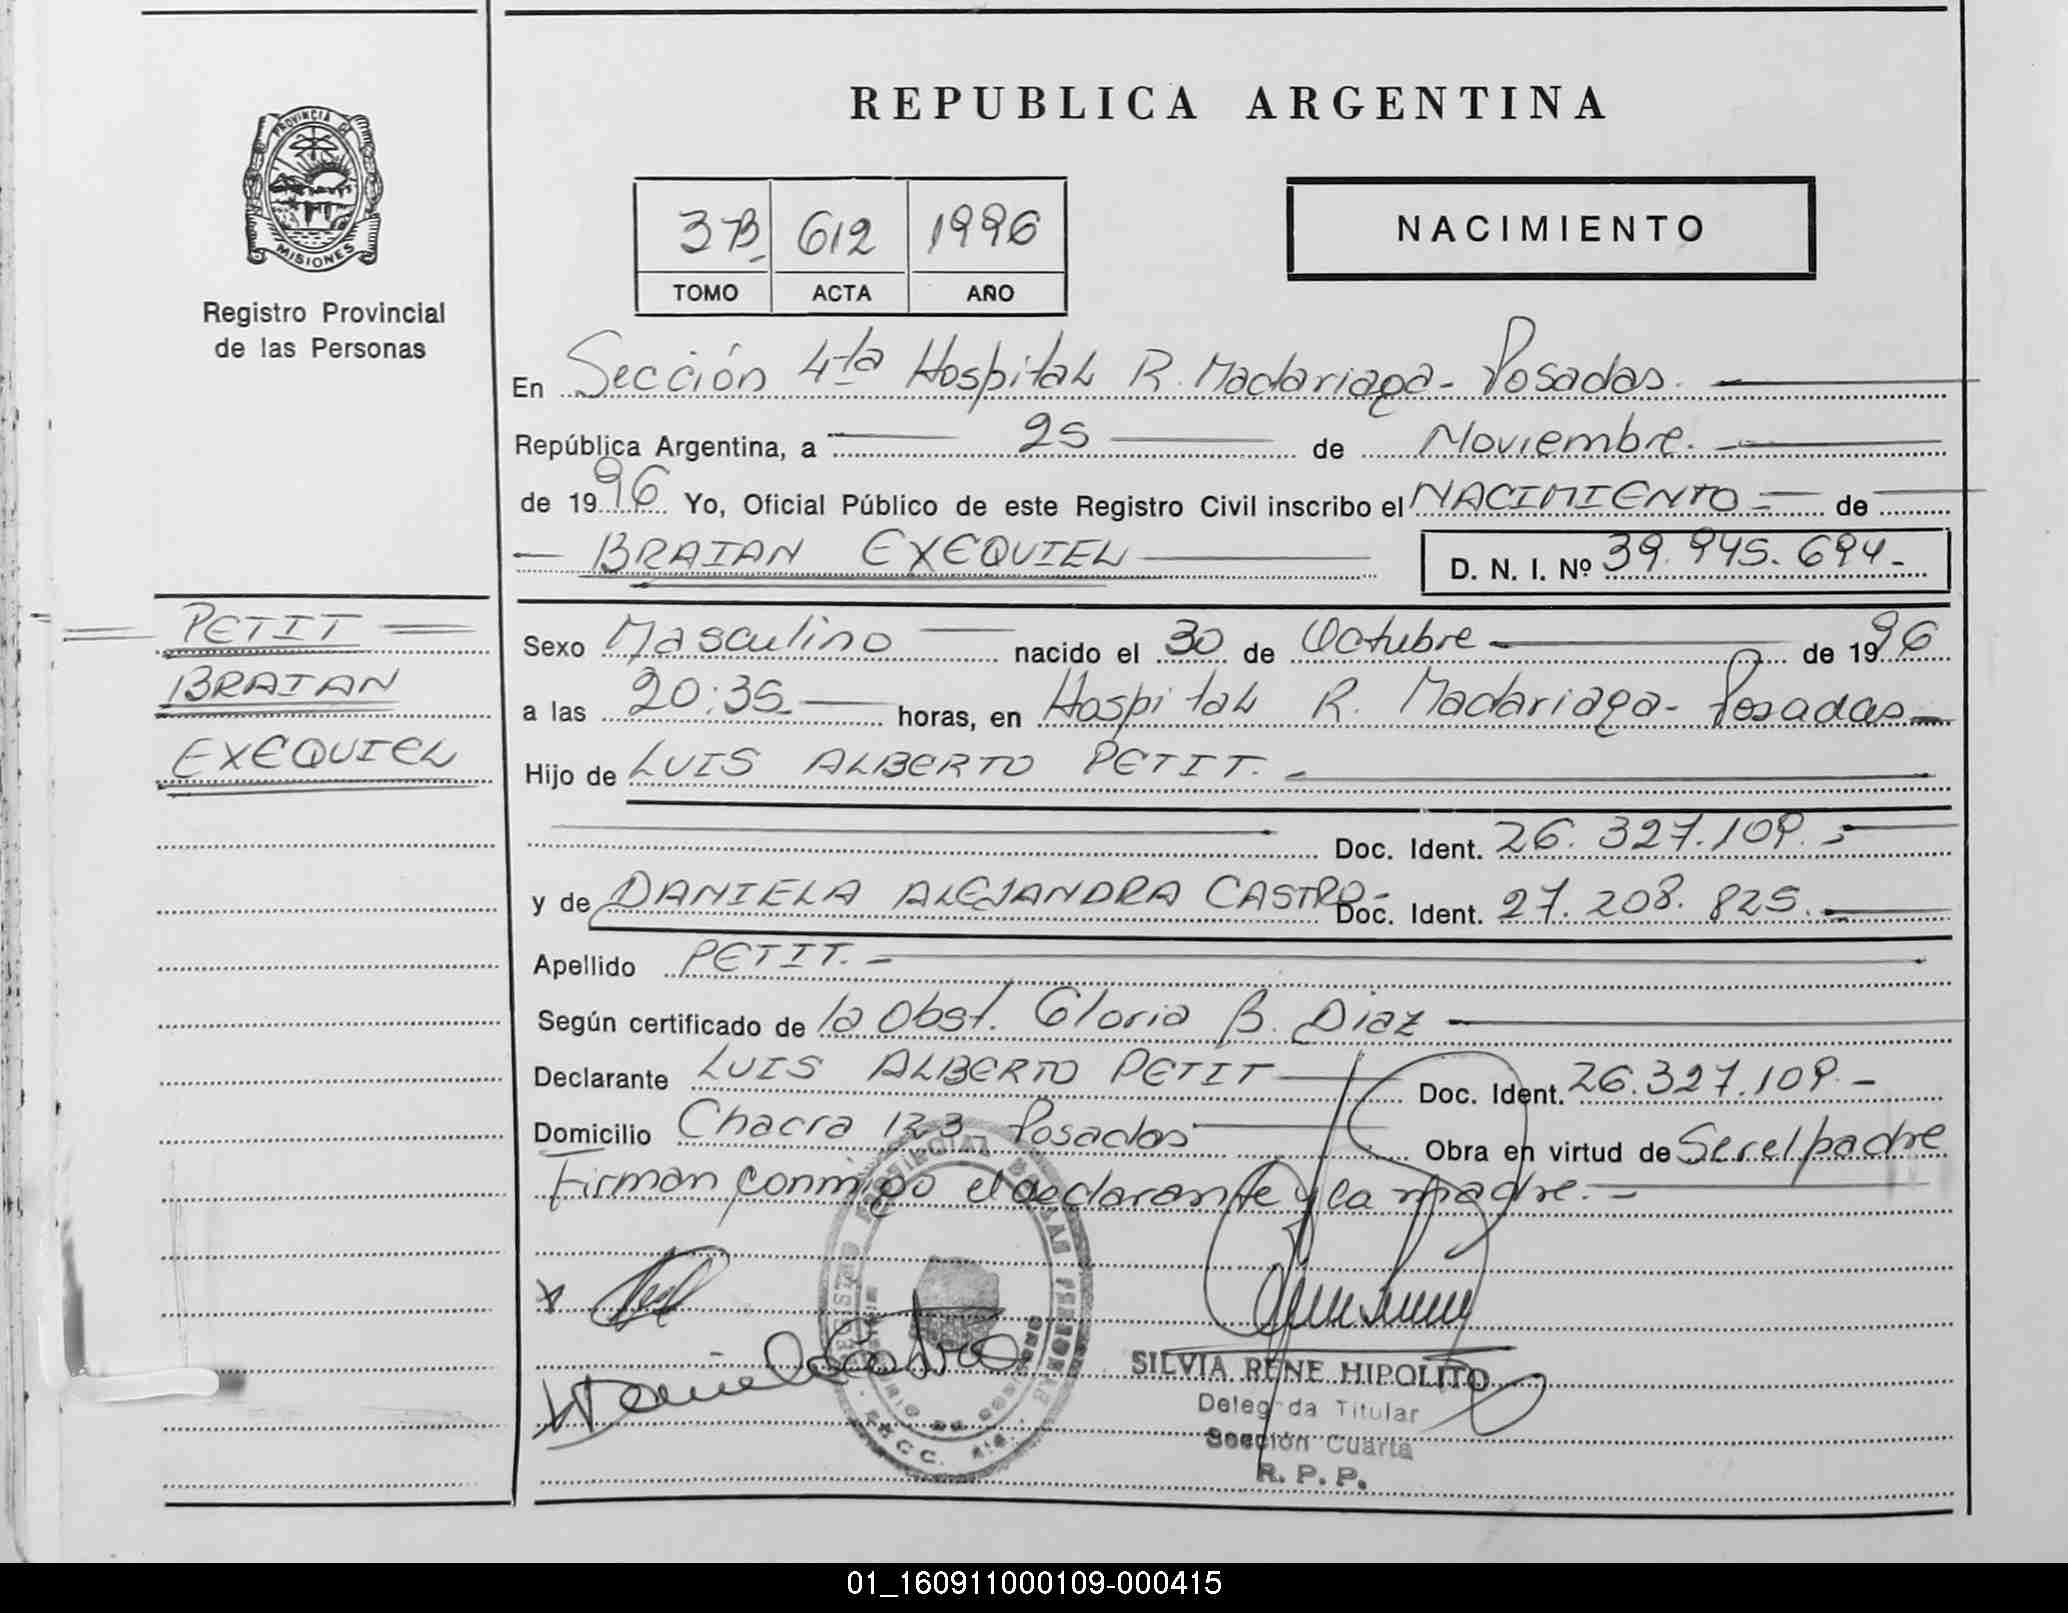 PROVINCIA DE
MISIONES
Registro Provincial
de las Personas
PETIT
BRAIAN
EXEQUIEL
REPUBLICA ARGENTINA
3B 612 1996
TOMO ACTA AÑO
NACIMIENTO
En Sección 4ta Hospital R. Madariaga - Posadas.
República Argentina, a 25 de Noviembre.
de 1996 Yo, Oficial Público de este Registro Civil inscribo el NACIMIENTO de
BRAIAN EXEQUIEL D. N. I. Nº 39.945.694.-
Sexo Masculino nacido el 30 de Octubre de 1996
a las 20:35 horas, en Hospital R. Madariaga - Posadas
Hijo de LUIS ALBERTO PETIT. -
Doc. Ident. 26.327.109.-
y de DANIELA ALEJANDRA CASTRO- Doc. Ident. 27.208.825.-
Apellido PETIT. -
Según certificado de la Obst. Gloria B. Diaz
Declarante LUIS ALBERTO PETIT Doc. Ident. 26.327.109.-
Domicilio Chacra 123 Posadas Obra en virtud de Ser el padre
Firman conmigo el declarante y la madre. -
SILVIA RENE HIPOLITO
Deleg da Titular
Sección Cuarta
R. P. P.
01_160911000109-000415